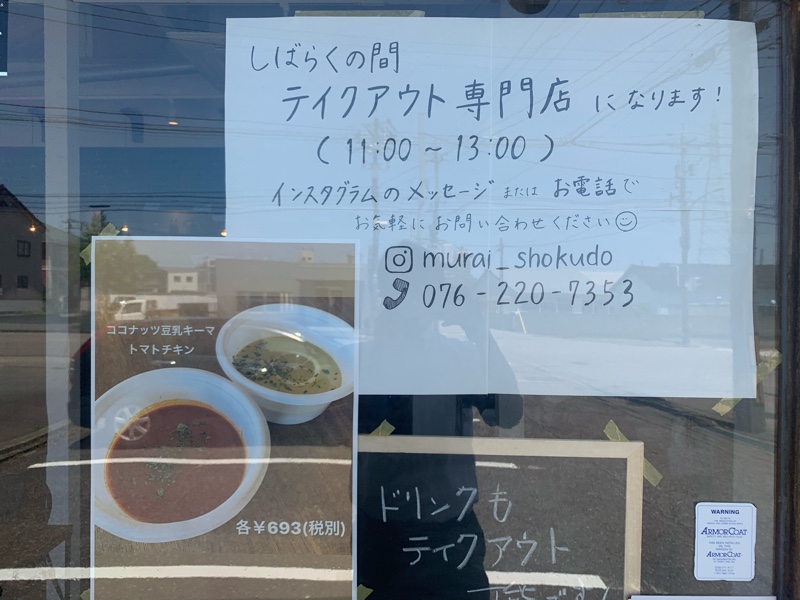 しばらくの間
テイクアウト専門店 になります!
(11:00 ~ 13:00)
インスタグラムのメッセージ または お電話で
お気軽に お問い合わせください
murai_shokudo
076-220-7353
ココナッツ豆乳キーマ
トマトチキン
各¥693(税別)
ドリンクも
テイクアウト
WARNING
ARMORCOAT
ARMORCOAT